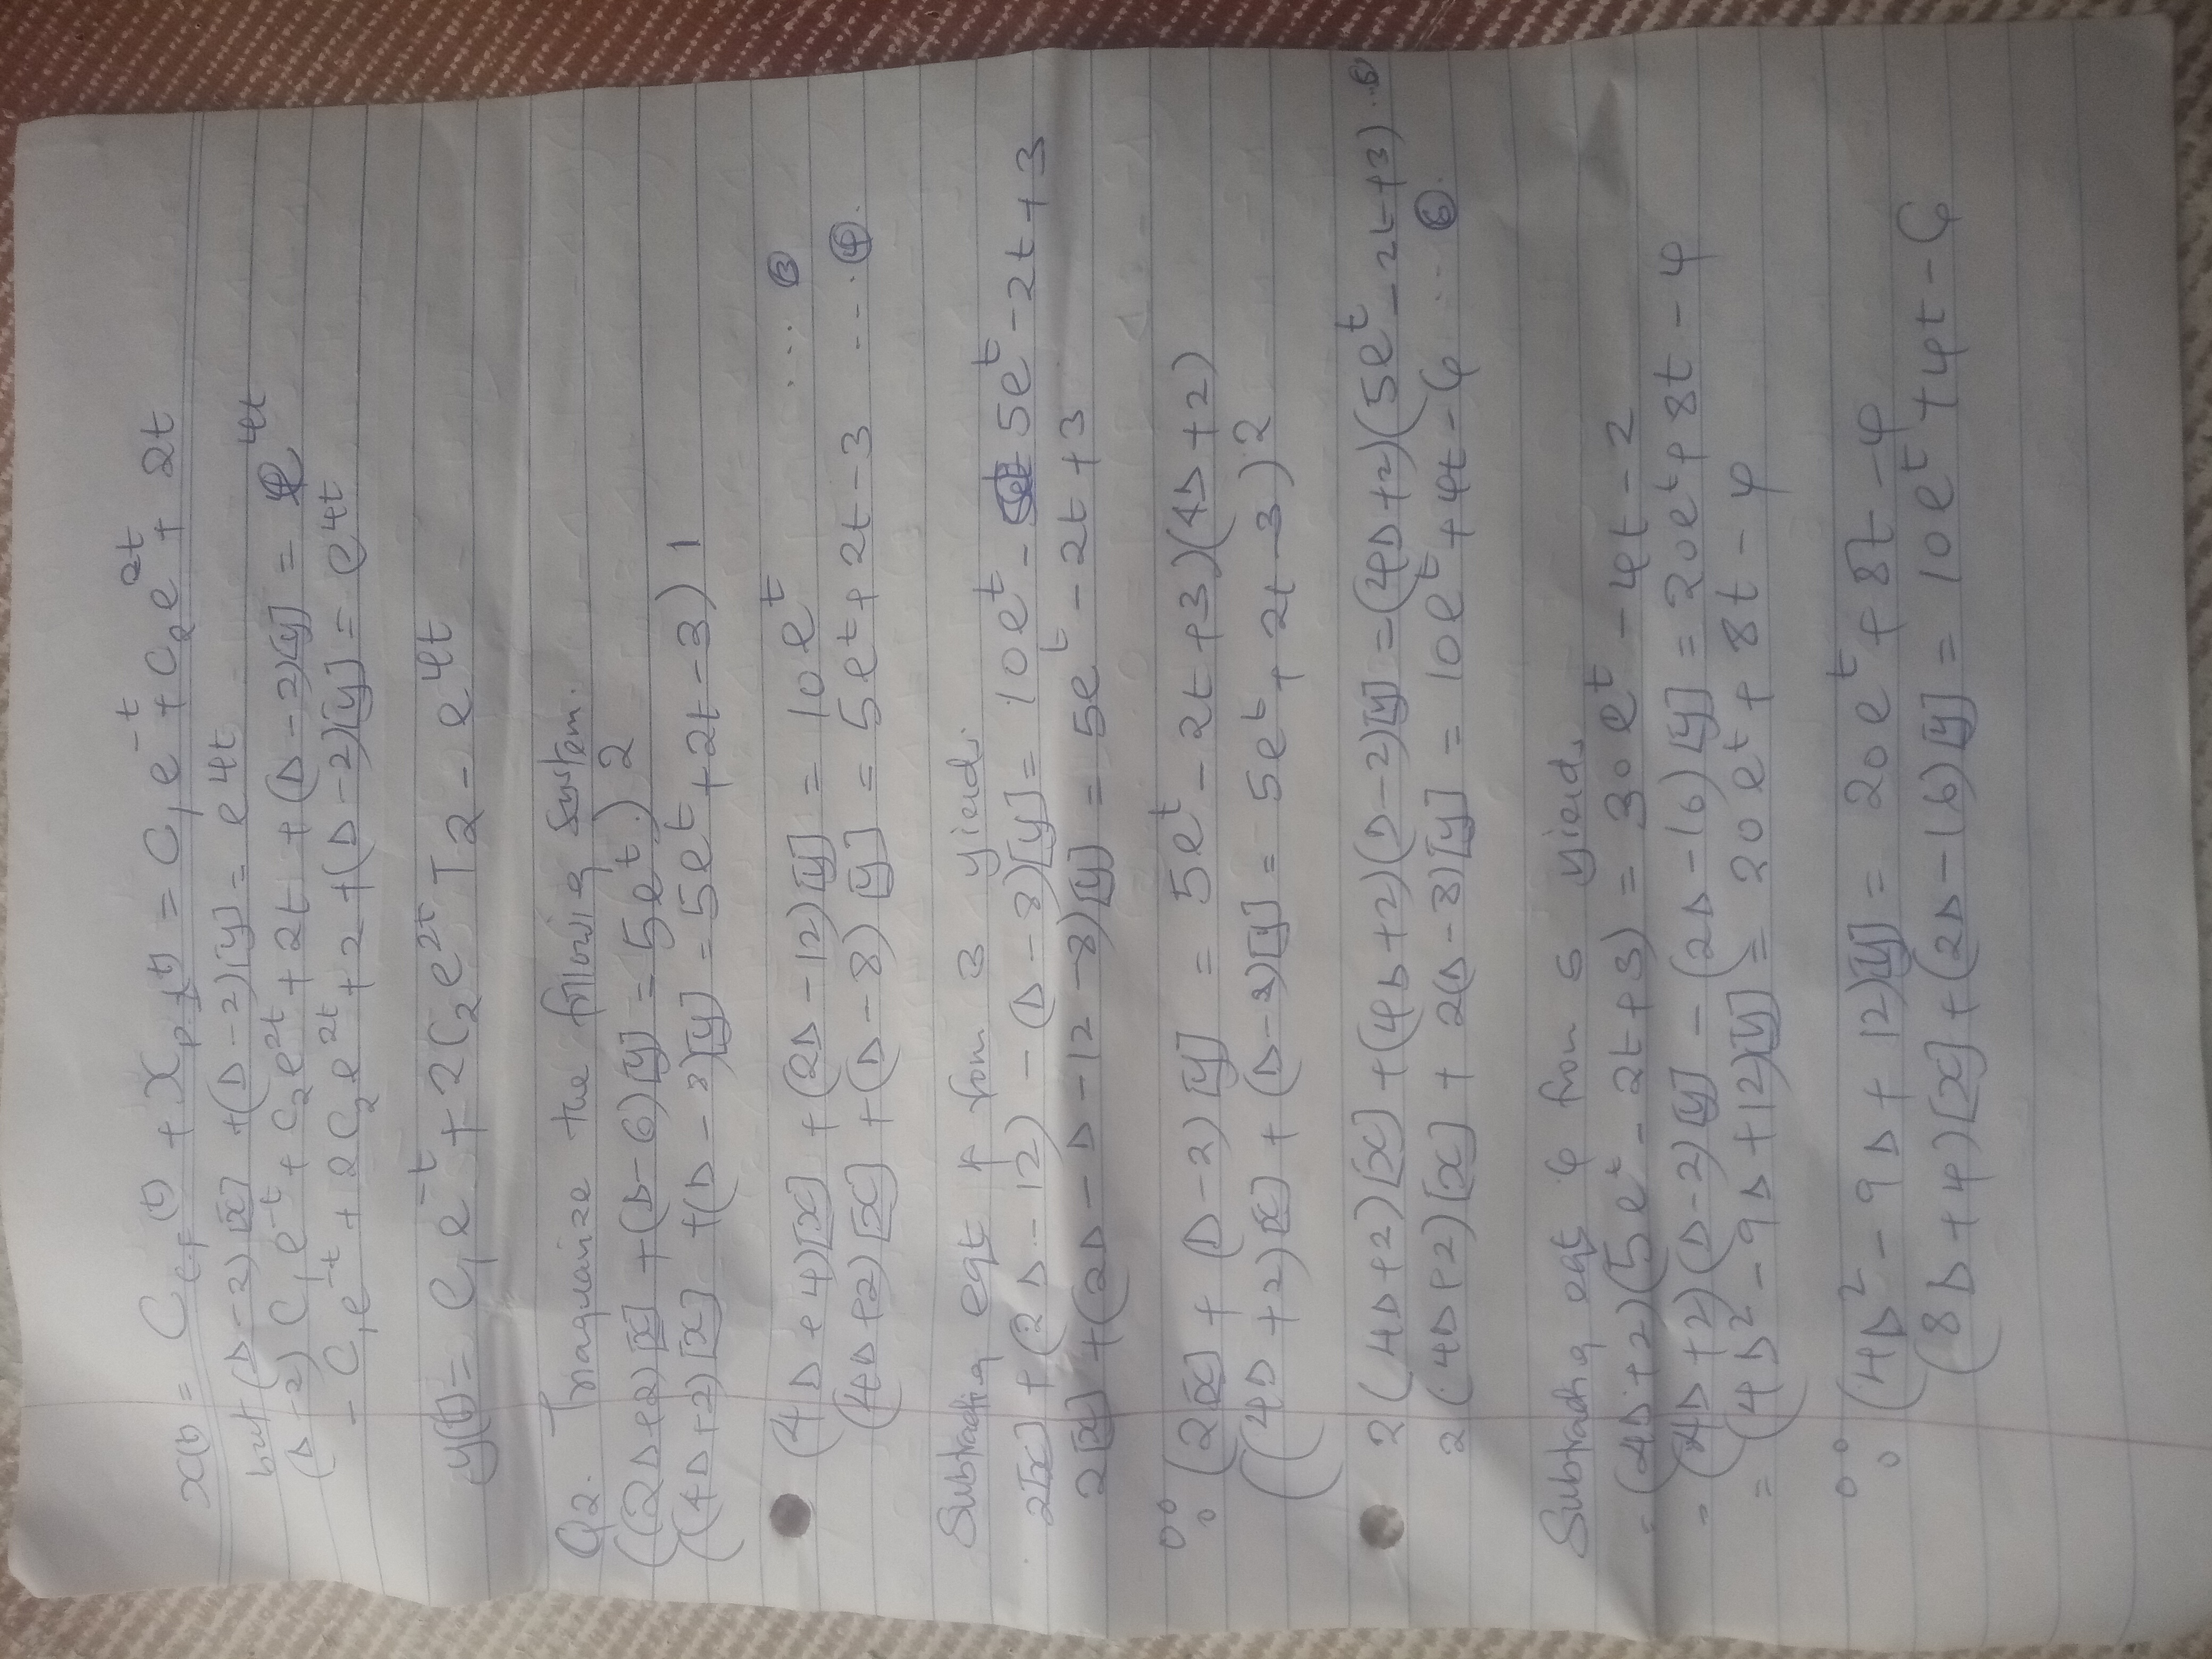 x(t) = C_{C.F}(t) + X_{P.I}(t) = C₁e^{-t} + C₂e^{2t} + 2t
but (D-2)[x] + (D-2)[y] = e^{4t}
(D-2) C₁e^{-t} + C₂e^{2t} + 2t + (D-2)[y] = e^{4t}
-C₁e^{-t} + 2C₂e^{2t} + 2 + (D-2)[y] = e^{4t}
y(t) = C₁e^{-t} + 2C₂e^{2t} + 2 - e^{4t}
Q2. the following system.
((2D+2)[x] + (D-6)[y] = 5e^t.) 2
((4D+2)[x] + (D-8)[y] = 5e^t + 2t - 3) 1
(4D+4)[x] + (2D-12)[y] = 10e^t ... ③
(4D+2)[x] + (D-8)[y] = 5e^t + 2t - 3 ... ④.
Subtracting eqt 4 from 3 yields.
2[x] + (2D-12) - (D-8)[y] = 10e^t - 5e^t - 2t + 3
2[x] + (2D - D - 12 - 8)[y] = 5e^t - 2t + 3
∴ (2[x] + (D-2)[y] = 5e^t - 2t + 3)(4D+2)
((4D+2)[x] + (D-8)[y] = 5e^t + 2t - 3) 2
2(4D+2)[x] + (4D+2)(D-2)[y] = (4D+2)(5e^t - 2t + 3) ...⑤
2(4D+2)[x] + 2(D-8)[y] = 10e^t + 4t - 6 ... ⑥.
Subtracting eqt 6 from 5 yields
= (4D+2)(5e^t - 2t + 3) = 30e^t - 4t - 2
= (4D+2)(D-2)[y] - (2D-16)[y] = 20e^t + 8t - 4
= (4D² - 9D + 12)[y] = 20e^t + 8t - 4
∴ (4D² - 9D + 12)[y] = 20e^t + 8t - 4
(8D+4)[x] + (2D-16)[y] = 10e^t + 4t - 6